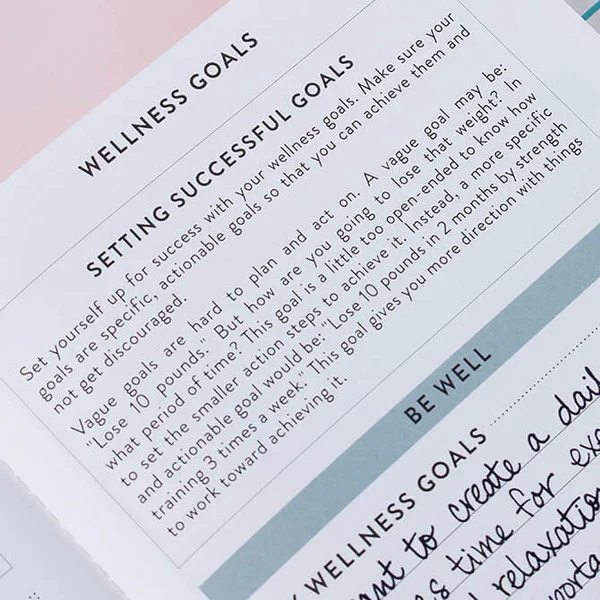 WELLNESS GOALS
SETTING SUCCESSFUL GOALS
Set yourself up for success with your wellness goals. Make sure your
goals are specific, actionable goals so that you can achieve them and
not get discouraged.
Vague goals are hard to plan and act on. A vague goal may be:
"Lose 10 pounds." But how are you going to lose that weight? In
what period of time? This goal is a little too open-ended to know how
to set the smaller action steps to achieve it. Instead, a more specific
and actionable goal would be: "Lose 10 pounds in 2 months by strength
training 3 times a week." This goal gives you more direction with things
to work toward achieving it.
BE WELL
WELLNESS GOALS
to create a
time for
relaxation